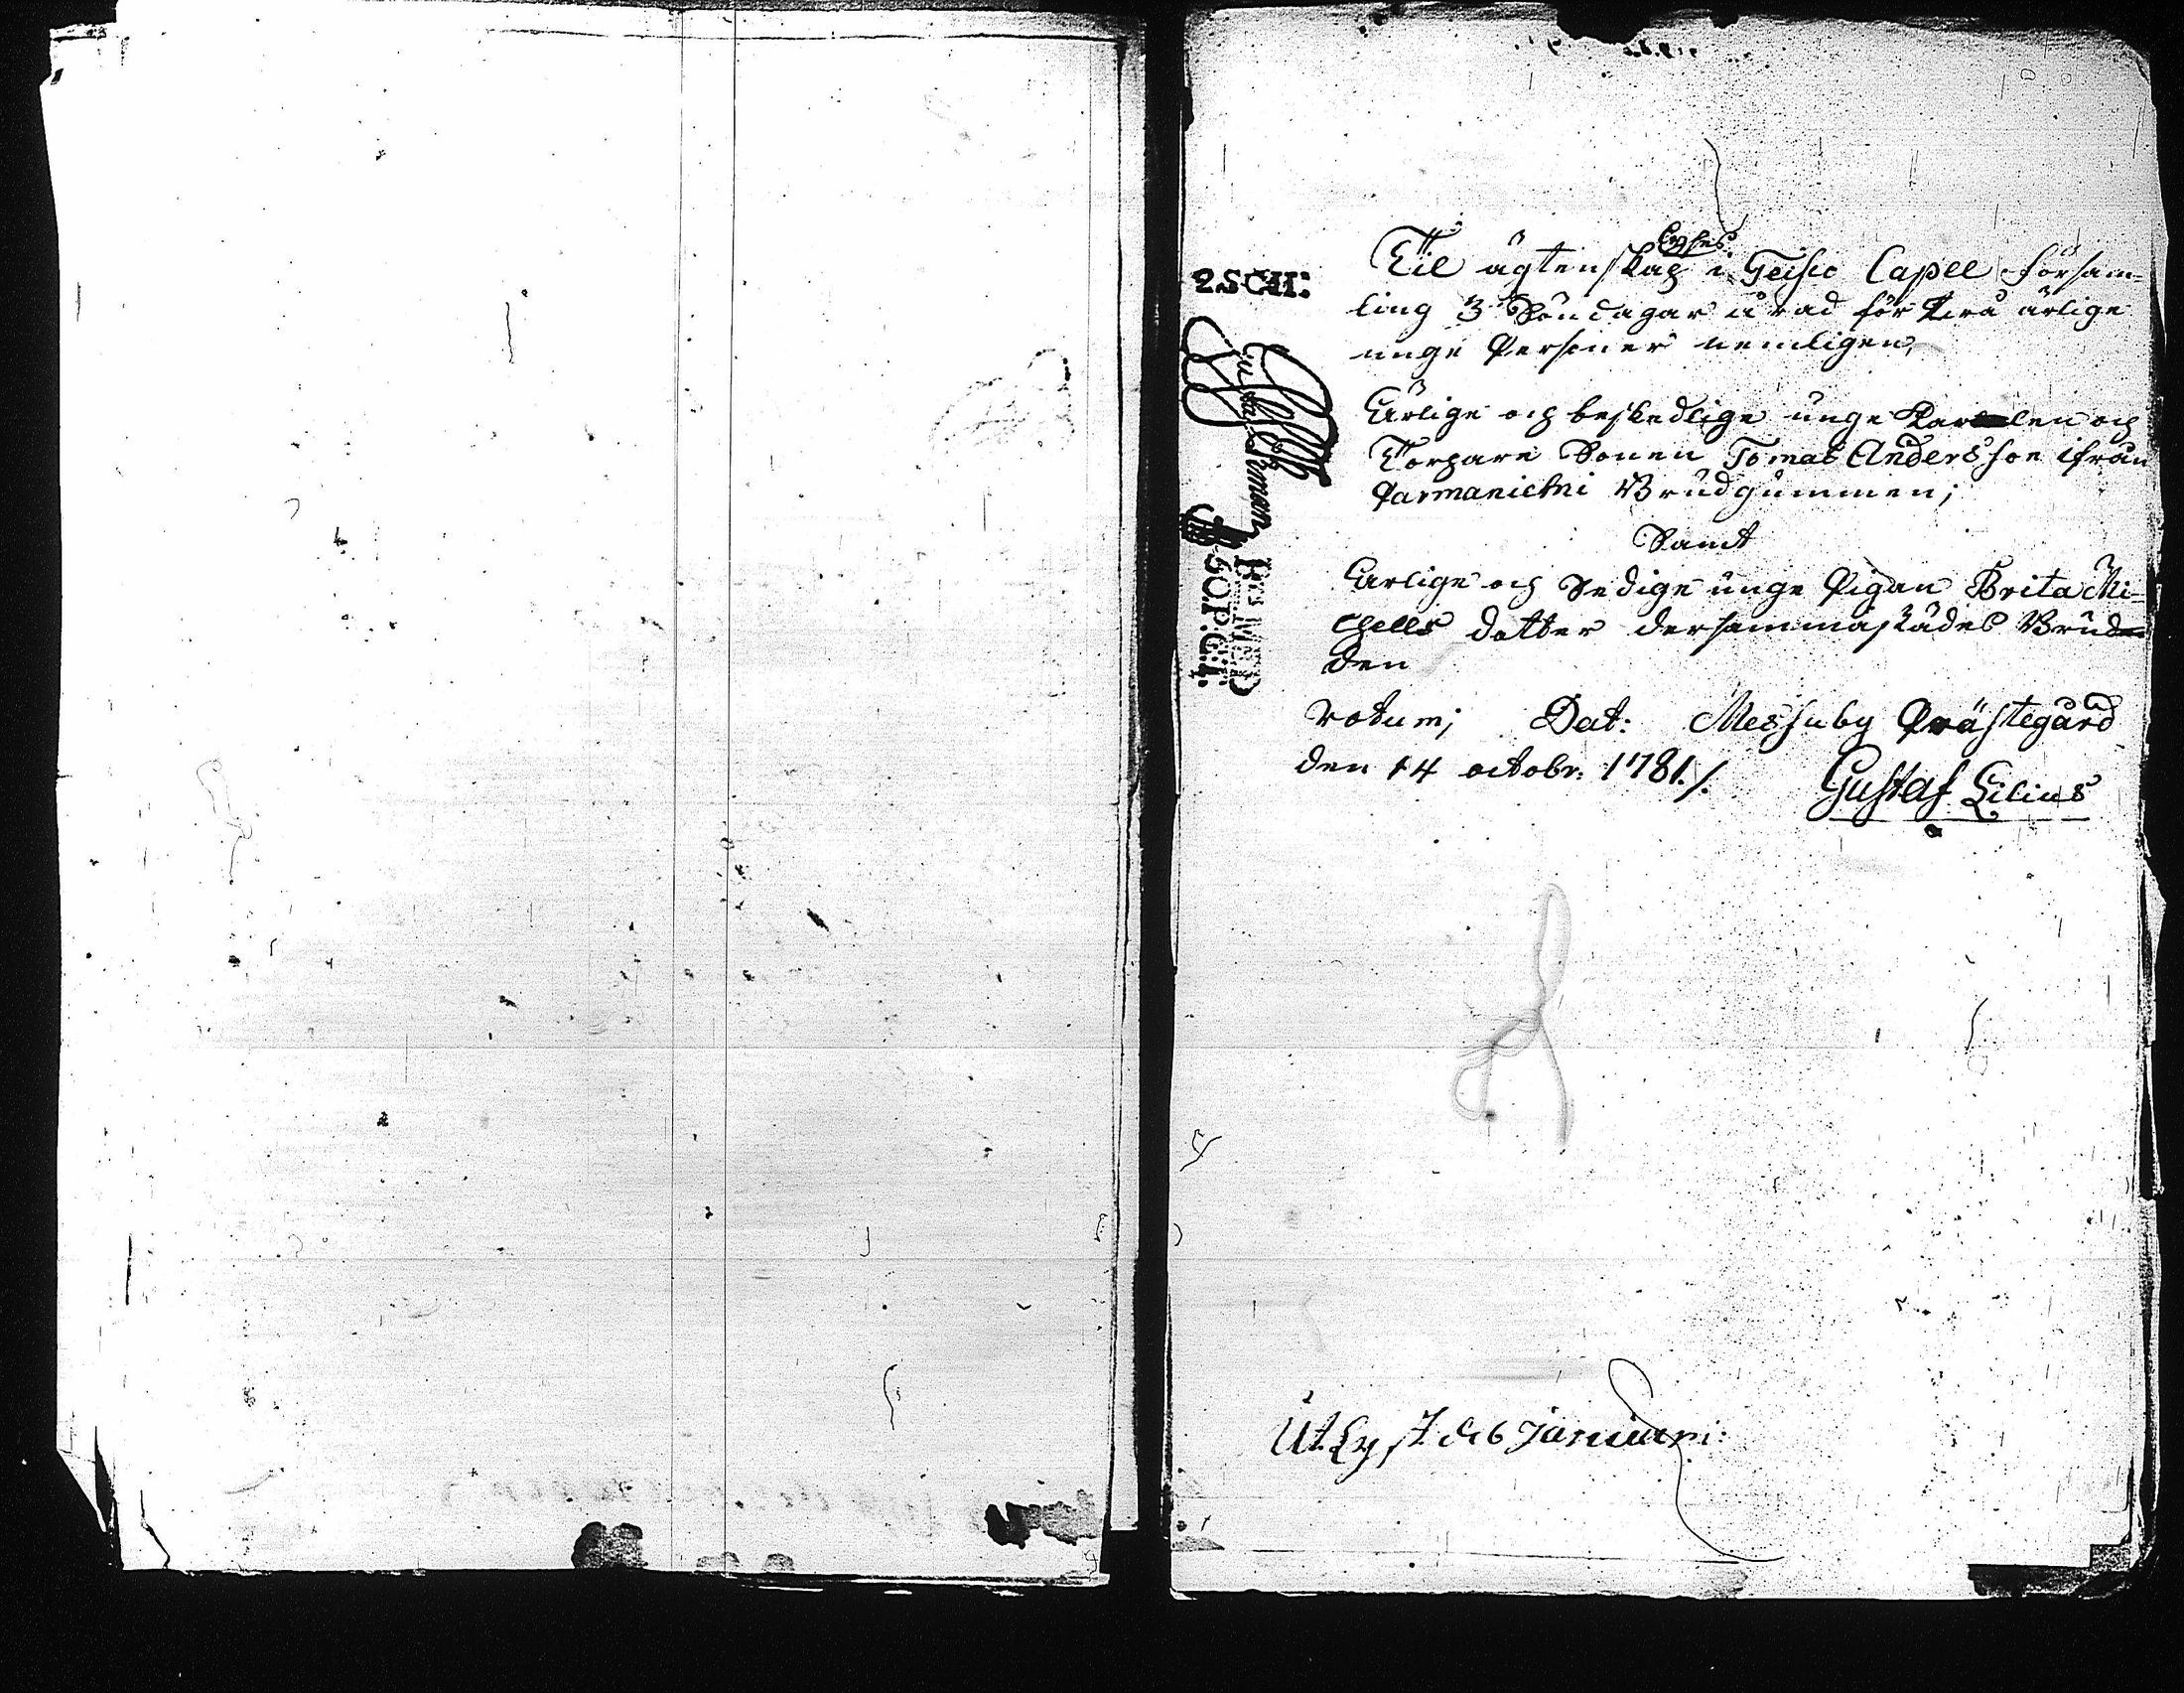 Lyses
Til ägtenskap i Teisco Capell försam-
2.SCH:
ling 3 Söndagar å rad för tvrå ärlige
unge Personer nemligen,
Ärlige och beskedlige unge Karlen och
Torpare Sonen Tomas Andersson ifrån
Parmanichni Brudgummen;
Samt
Ärlige och Sedige unge Pigan Brita Mi-
chells dotter dersammastädes Brud
den
votum; Dat: Messuby Prästegård
den 14 octobr: 1781./.
Gustaf Lilius
Ut Lyst d: 6 Januari: